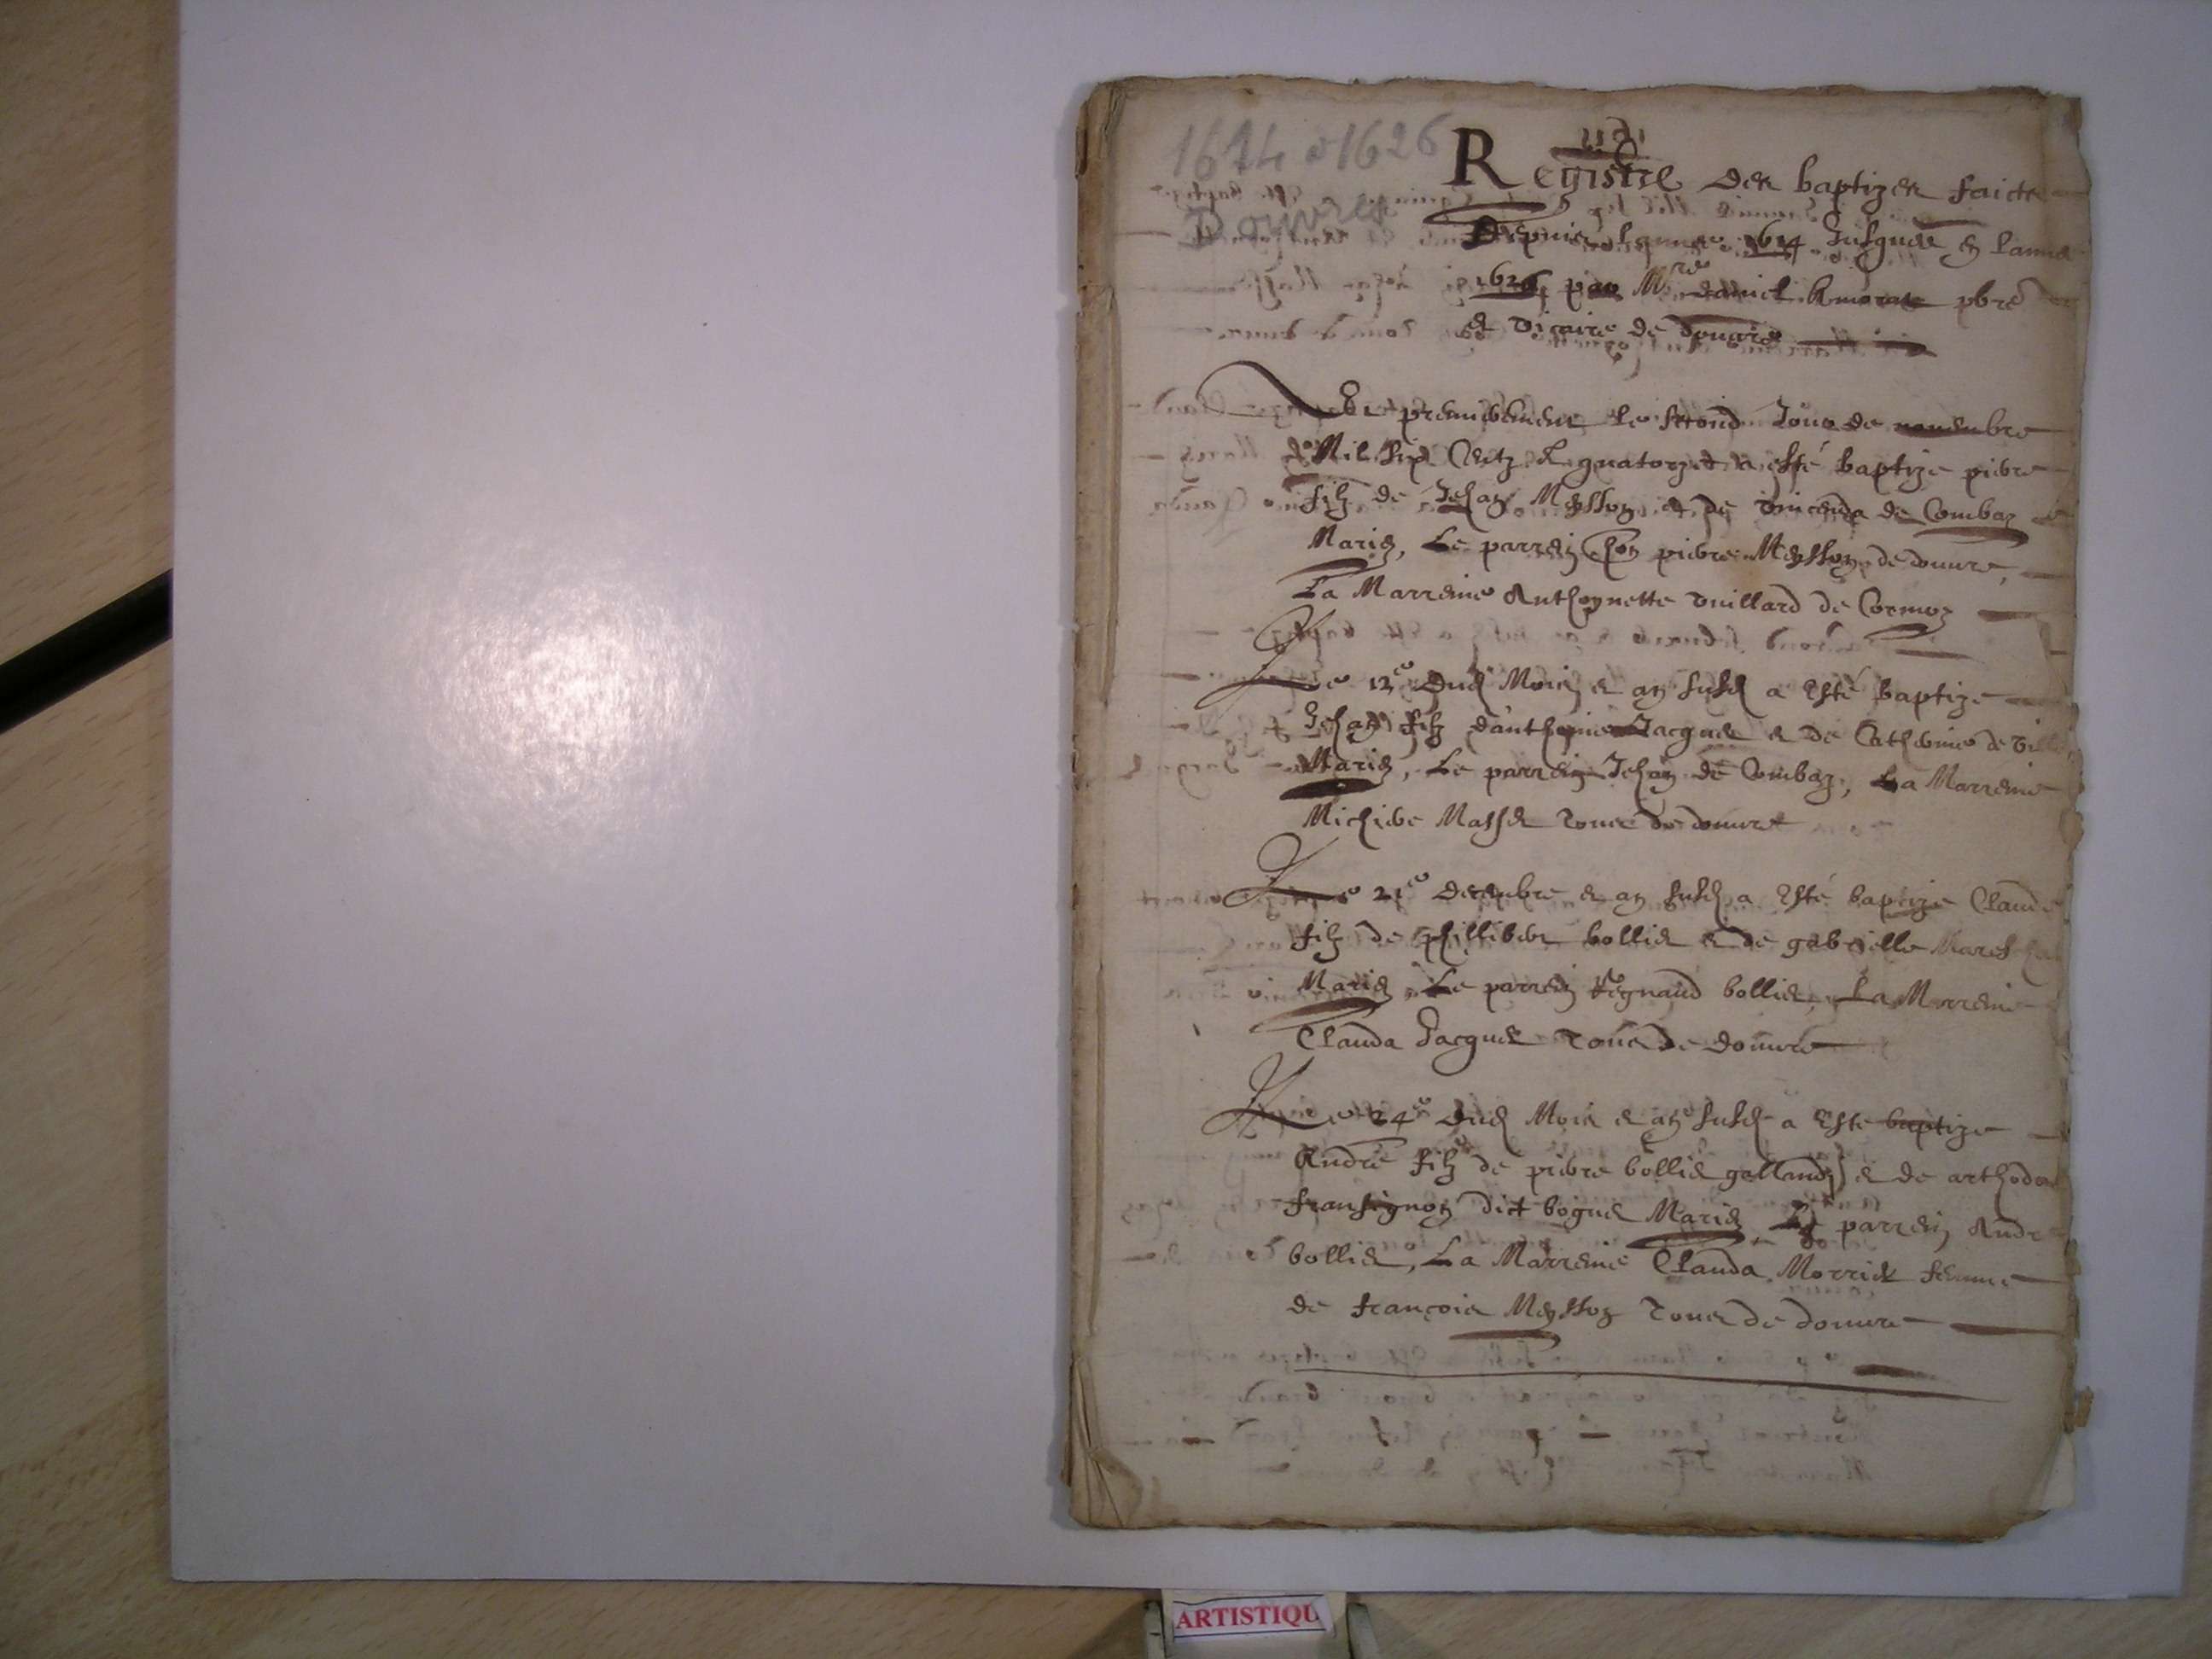 1614 à 1626
Douvres
Registre des baptizes faictz
Despuis lannee 1614 Jusques en lannee
1626 par Mre daniel pbre
et vicaire de douvre
Et premierement le second Jour de novembre
Mil Six Centz et quatorze a esté baptize pierre
filz de Jehan Meysson et de vincenda de Combaz
Mariez, Le parrein hon pierre Meysson de douvre,
La Marreine Anthoynette vuillard de Cormoz
Le 12e dud Mois et an susd a esté baptize
Jehan filz danthoine Jacques et de Catherine de
Mariez, Le parrein Jehan de Combaz, La Marreine
Michiere Masses tous de douvre
Le 21e decembre et an susd a esté baptize Claude
filz de phillibert bollies et de gabrielle
Mariez Le parrein Regnaud bollies, La Marreine
Clauda Jacques tous de douvre
Le 24e dud Mois et an susd a este baptize
André filz de pierre bollies galland et de
dict Mariez Le parrein Andre
bollies, La Marreine Clauda femme
de francois Meysson tous de douvre
ARTISTIQU